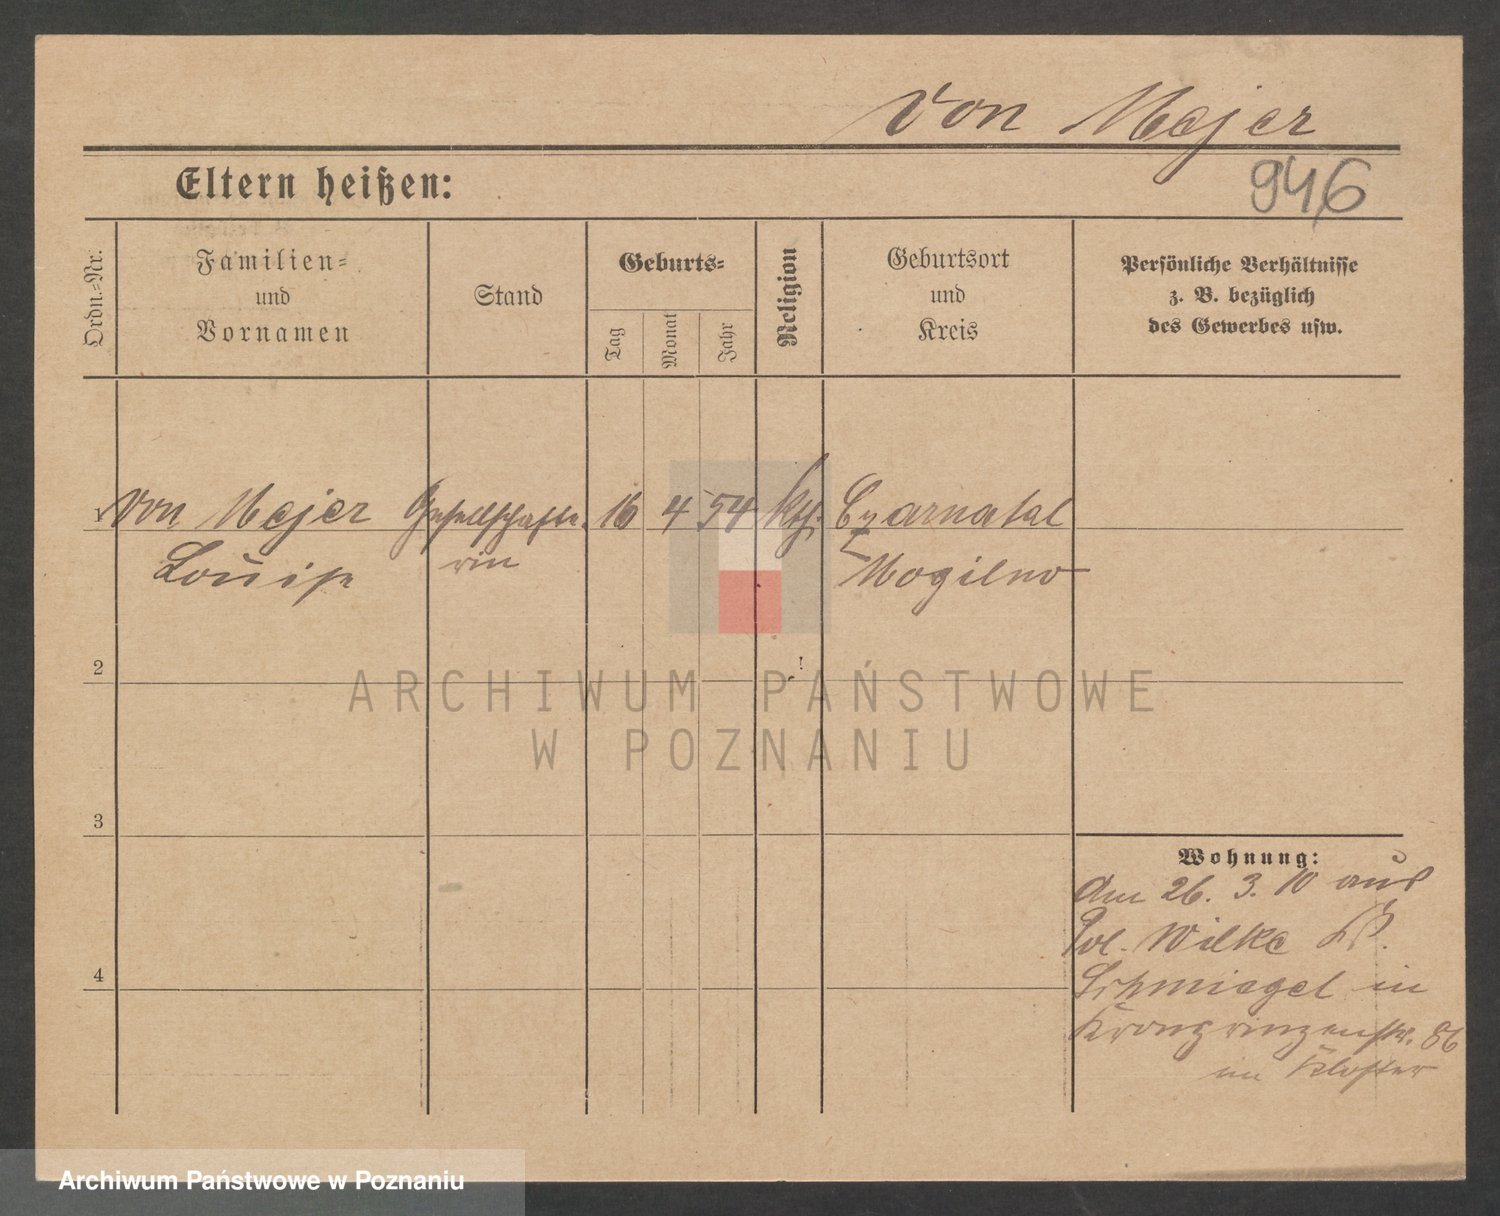 von Mejer
946
Eltern heißen:
Ordn.-Nr.
Familien-
und
Vornamen
Stand
Geburts-
Tag
Monat
Jahr
Religion
Geburtsort
und
Kreis
Persönliche Verhältnisse
z. B. bezüglich
des Gewerbes usw.
1 von Mejer Gesellschafte- 16 4 54 kth. Czarnatal
Louise rin Mogilno
2
3
4
Wohnung:
Am 26. 3. 10 aus
Pol. Wilke Kr.
Schmiegel in
Kronprinzenstr. 86
im Kloster
ARCHIWUM PAŃSTWOWE
W POZNANIU
Archiwum Państwowe w Poznaniu